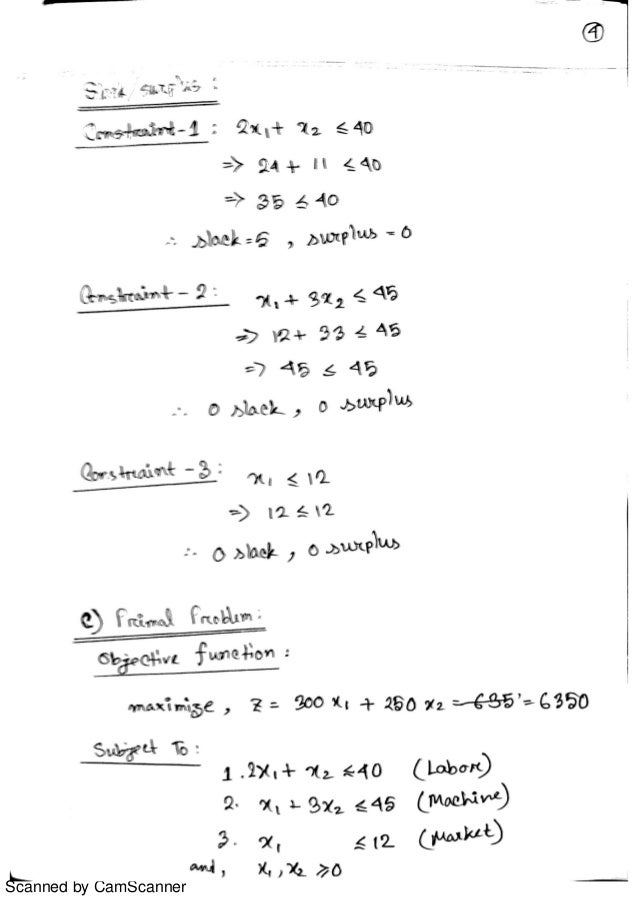 4
Slack/surplus :
Constraint-1 : 2x₁+ x₂ ≤ 40
=> 24 + 11 ≤ 40
=> 35 ≤ 40
∴ slack = 5 , surplus = 0
Constraint - 2 : x₁ + 3x₂ ≤ 45
=> 12 + 33 ≤ 45
=> 45 ≤ 45
∴ 0 slack , 0 surplus
Constraint - 3 : x₁ ≤ 12
=> 12 ≤ 12
∴ 0 slack , 0 surplus
e) Primal Problem :
Objective function :
maximize , Z = 300 x₁ + 250 x₂ = 635 = 6350
Subject To :
1. 2x₁ + x₂ ≤ 40 (Labor)
2. x₁ + 3x₂ ≤ 45 (Machine)
3. x₁ ≤ 12 (Market)
and, x₁, x₂ ≥ 0
Scanned by CamScanner